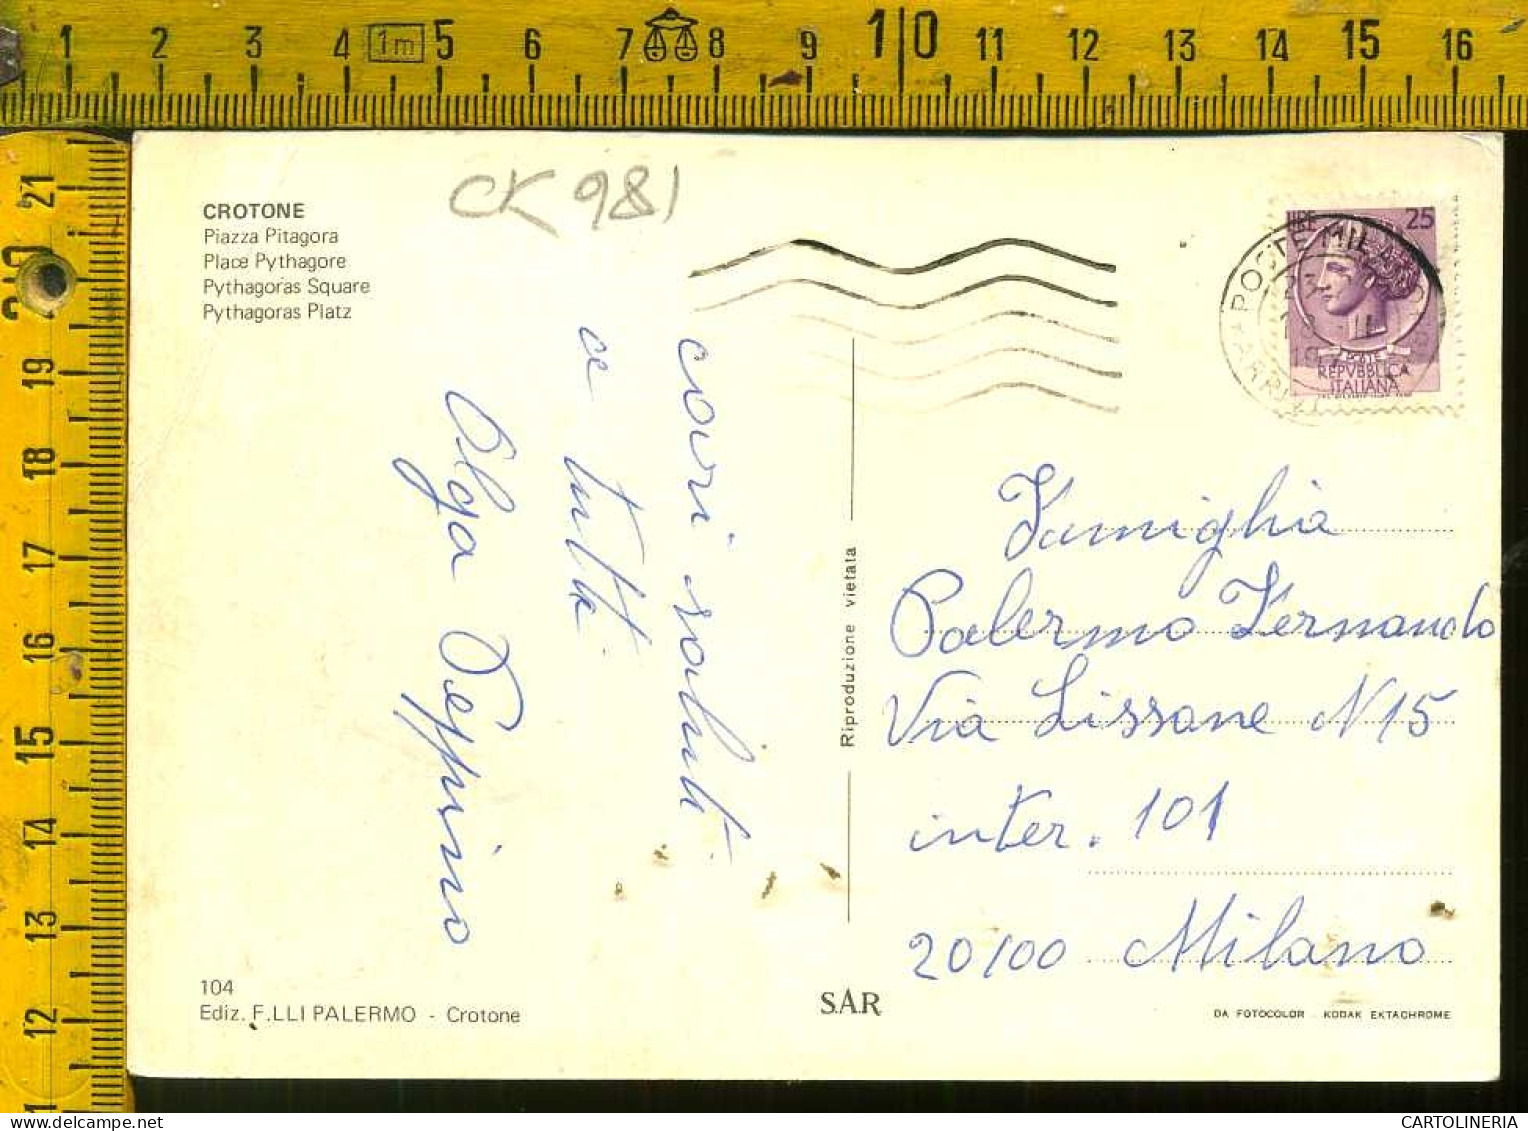 1 2 3 4 1m 5 6 7 8 9 10 11 12 13 14 15 16
21
20
19
18
17
16
15
14
13
12
CROTONE
Piazza Pitagora
Place Pythagore
Pythagoras Square
Pythagoras Platz
CK 981
cari saluti
a tutti
Olga Peppino
Riproduzione vietata
LIRE 25
POSTE
REPVBBLICA
ITALIANA
POSTE MILANO
Famiglia
Palermo Fernando
Via Lissone N 15
inter. 101
20100 Milano
104
Ediz. F.LLI PALERMO - Crotone
S.A.R
DA FOTOCOLOR - KODAK EKTACHROME
CARTOLINERIA